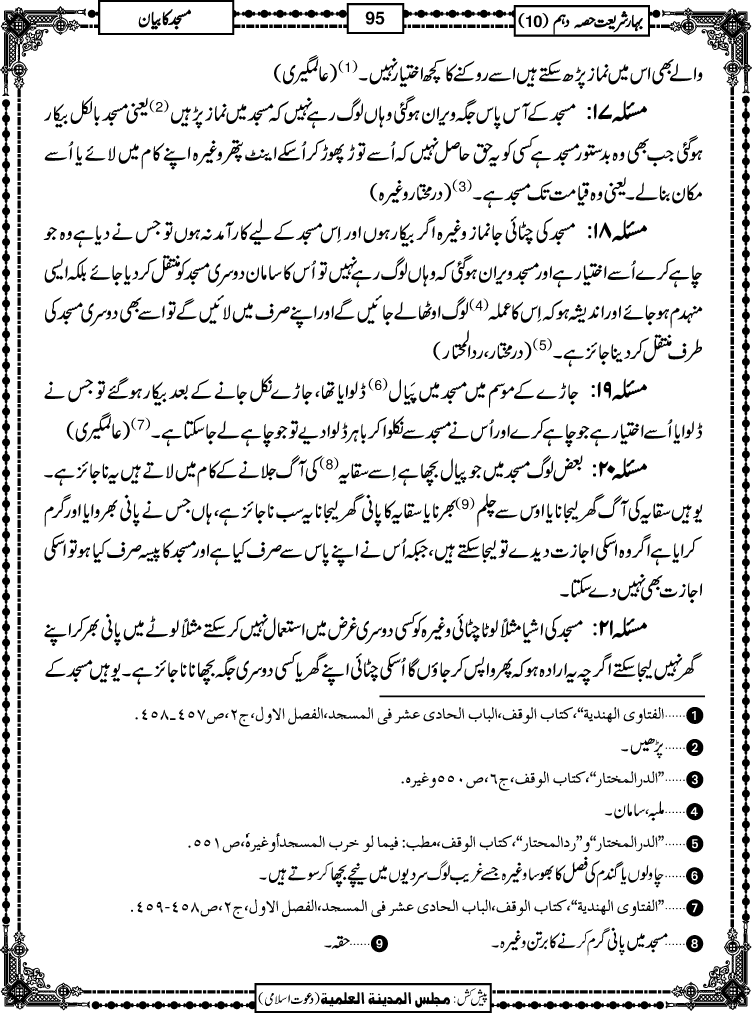 بہارِ شریعت حصہ دہم (10)
95
مسجد کا بیان
والے بھی اس میں نماز پڑھ سکتے ہیں اسے روکنے کا کچھ اختیار نہیں۔(1) (عالمگیری)
مسئلہ ۱۷: مسجد کے آس پاس جگہ ویران ہوگئی وہاں لوگ رہے نہیں کہ مسجد میں نماز پڑہیں(2) یعنی مسجد بالکل بیکار
ہوگئی جب بھی وہ بدستور مسجد ہے کسی کو یہ حق حاصل نہیں کہ اُسے توڑ پھوڑ کر اُسکے اینٹ پتھر وغیرہ اپنے کام میں لائے یا اُسے
مکان بنالے۔ یعنی وہ قیامت تک مسجد ہے۔(3) (درمختار وغیرہ)
مسئلہ ۱۸: مسجد کی چٹائی جانماز وغیرہ اگر بیکار ہوں اور اِس مسجد کے لیے کارآمد نہ ہوں تو جس نے دیا ہے وہ جو
چاہے کرے اُسے اختیار ہے اور مسجد ویران ہوگئی کہ وہاں لوگ رہے نہیں تو اُس کا سامان دوسری مسجد کو منتقل کر دیا جائے بلکہ ایسی
منہدم ہوجائے اور اندیشہ ہو کہ اِس کا عملہ(4) لوگ اوٹھا لے جائیں گے اور اپنے صرف میں لائیں گے تو اسے بھی دوسری مسجد کی
طرف منتقل کر دینا جائز ہے۔(5) (درمختار، ردالمحتار)
مسئلہ ۱۹: جاڑے کے موسم میں مسجد میں پَیال(6) ڈلوایا تھا، جاڑے نکل جانے کے بعد بیکار ہوگئے تو جس نے
ڈلوایا اُسے اختیار ہے جو چاہے کرے اور اُس نے مسجد سے نکلوا کر باہر ڈلوا دیے تو جو چاہے لے جاسکتا ہے۔(7) (عالمگیری)
مسئلہ ۲۰: بعض لوگ مسجد میں جو پیال بچھا ہے اِسے سقایہ(8) کی آگ جلانے کے کام میں لاتے ہیں یہ ناجائز ہے۔
یوہیں سقایہ کی آگ گھر لیجانا یا اوس سے چلم(9) بھرنا یا سقایہ کا پانی گھر لیجانا یہ سب ناجائز ہے، ہاں جس نے پانی بھروایا اور گرم
کرایا ہے اگر وہ اسکی اجازت دیدے تو لیجاسکتے ہیں، جبکہ اُس نے اپنے پاس سے صرف کیا ہے اور مسجد کا پیسہ صرف کیا ہو تو اسکی
اجازت بھی نہیں دے سکتا۔
مسئلہ ۲۱: مسجد کی اشیا مثلاً لوٹا چٹائی وغیرہ کو کسی دوسری غرض میں استعمال نہیں کر سکتے مثلاً لوٹے میں پانی بھر کر اپنے
گھر نہیں لیجاسکتے اگرچہ یہ ارادہ ہو کہ پھر واپس کر جاؤں گا اُسکی چٹائی اپنے گھر یا کسی دوسری جگہ بچھانا ناجائز ہے۔ یوہیں مسجد کے
1 ......"الفتاوی الهندية"، كتاب الوقف،الباب الحادی عشر فی المسجد،الفصل الاول،ج٢،ص٤٥٧ـ٤٥٨.
2 ......پڑھیں۔
3 ......"الدرالمختار"، کتاب الوقف،ج٦،ص٥٥٠وغيره.
4 ......ملبہ، سامان۔
5 ......"الدرالمختار"و"ردالمحتار"،كتاب الوقف،مطب: فيما لو خرب المسجدأوغيرهٗ،ص٥٥١.
6 ......چاولوں یا گندم کی فصل کا بھوسا وغیرہ جسے غریب لوگ سردیوں میں نیچے بچھا کر سوتے ہیں۔
7 ......"الفتاوی الهندية"، كتاب الوقف،الباب الحادی عشر فی المسجد،الفصل الاول،ج٢،ص٤٥٨-٤٥٩.
8 ......مسجد میں پانی گرم کرنے کا برتن وغیرہ۔ 9 ......حقہ۔
پیش کش: مجلس المدينة العلمية (دعوت اسلامی)